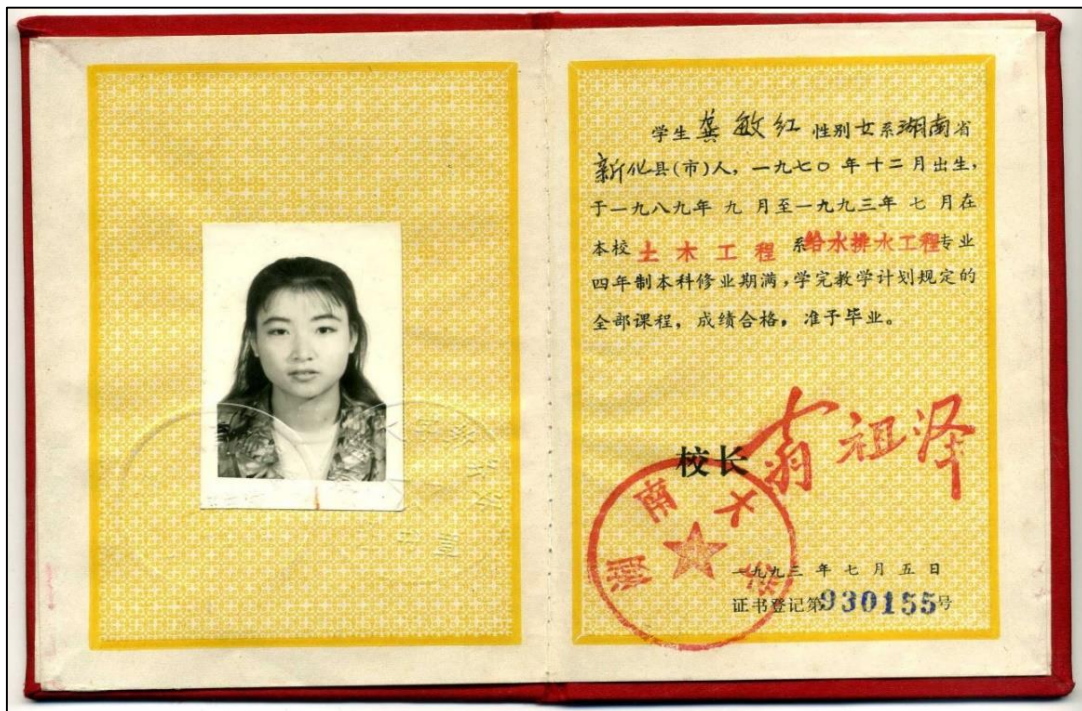 学生 龚敏红 性别女系湖南省
新化县(市)人，一九七〇年十二月出生，
于一九八九年 九 月至一九九三年 七 月在
本校 土木工程 系给水排水工程专业
四年制本科修业期满，学完教学计划规定的
全部课程，成绩合格，准予毕业。
校长 翁祖泽
湖南大学
一九九三 年 七 月 五 日
证书登记第930155号